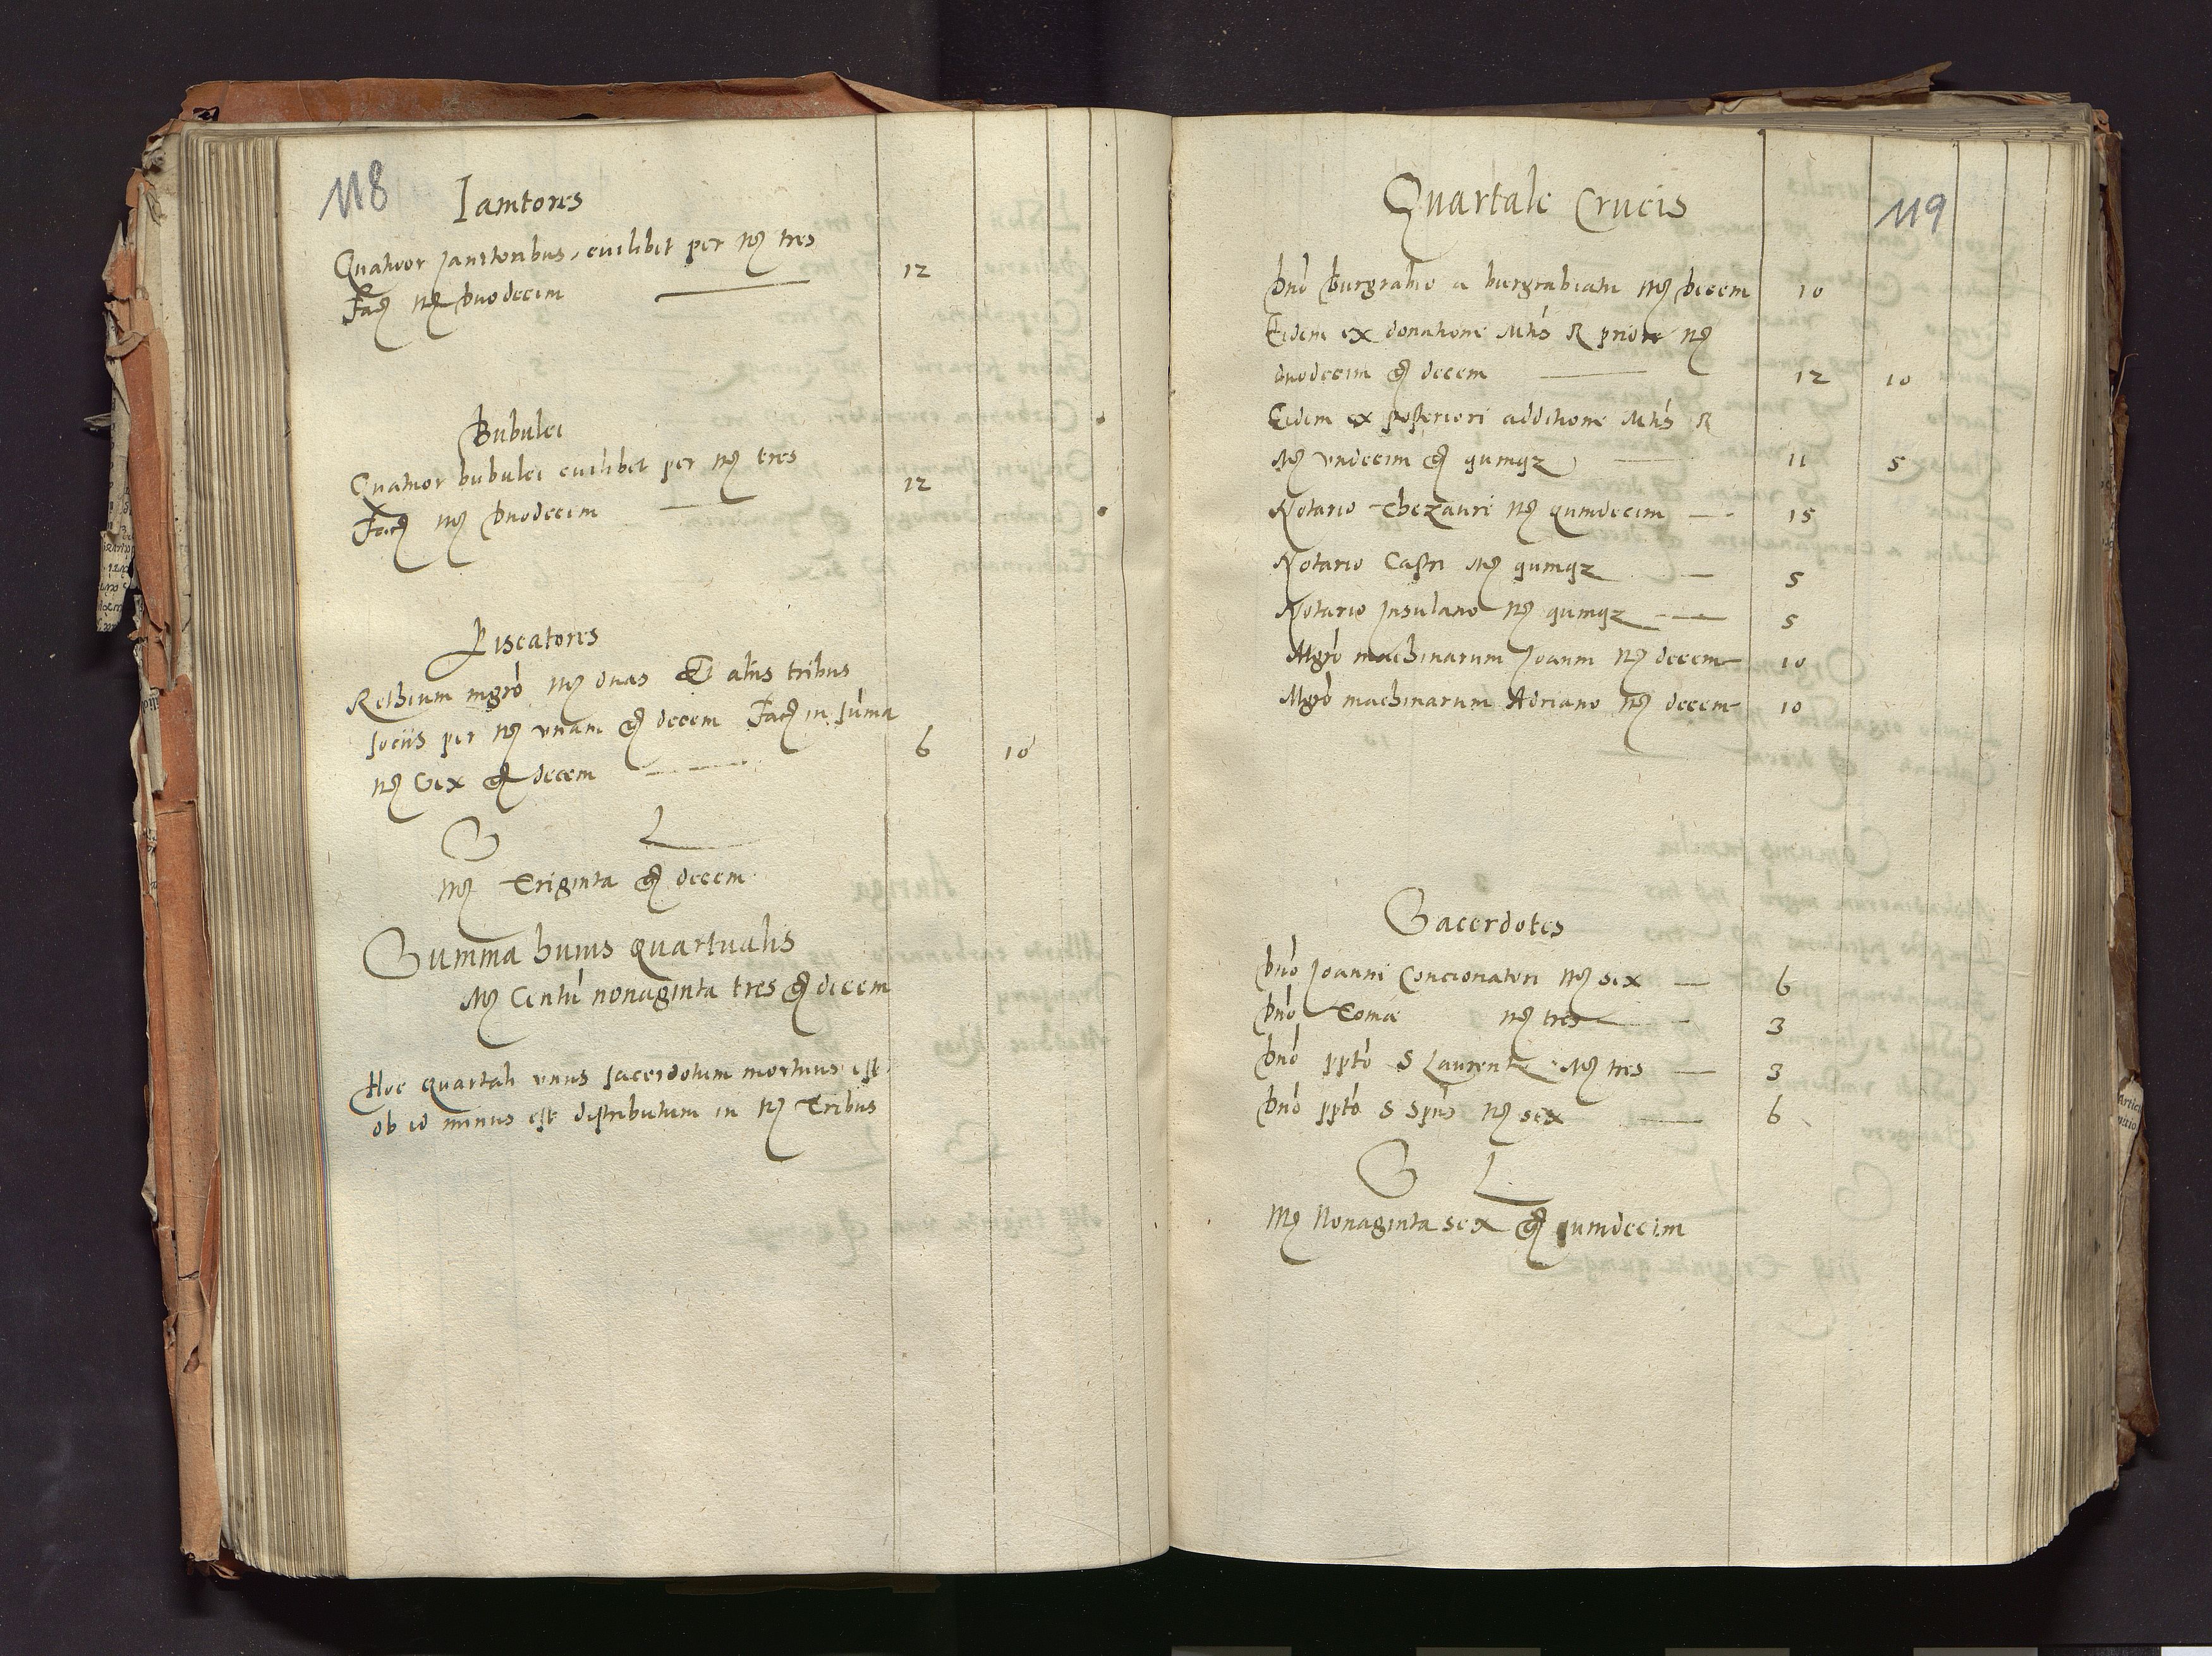 118
Ianitores
Quatuor Janitoribus, cuilibet per mꝛ tres
Facꝭ mꝛ duodecim 12
Bubulci
Quatuor bubulci cuilibet per mꝛ tres
Facꝭ mꝛ duodecim 12
Piscatores
Rethium mgrō mꝛ duas Et aliis tribus
sociis per mꝛ unam gꝭ decem Facꝭ in sūma
mꝛ Sex gꝭ decem 6 10
S L
mꝛ Triginta gꝭ decem
Summa huius quartualis
mꝛ Centū nonaginta tres gꝭ decem
Hoc quartali unus sacerdotum mortuus est
ob id minus est distributum in mꝛ Tribus
119
Quartale Crucis
Dnō Burgrabio a burgrabiatu mꝛ decem 10
Eidem ex donatione Mtis R priore mꝛ
duodecim gꝭ decem 12 10
Eidem ex posteriori additione Mtis R
mꝛ undecim gꝭ quinqꝫ 11 5
Notario Thezauri mꝛ quindecim 15
Notario Castri mꝛ quinqꝫ 5
Notario Insulano mꝛ quinqꝫ 5
Mgrō machinarum Joanni mꝛ decem 10
Mgrō machinarum Adriano mꝛ decem 10
Sacerdotes
Dnō Joanni Concionatori mꝛ sex 6
Dnō Tomae mꝛ tres 3
Dnō ppto S Laurenti mꝛ tres 3
Dnō ppto S Spūs mꝛ sex 6
S L
mꝛ Nonaginta sex gꝭ quindecim